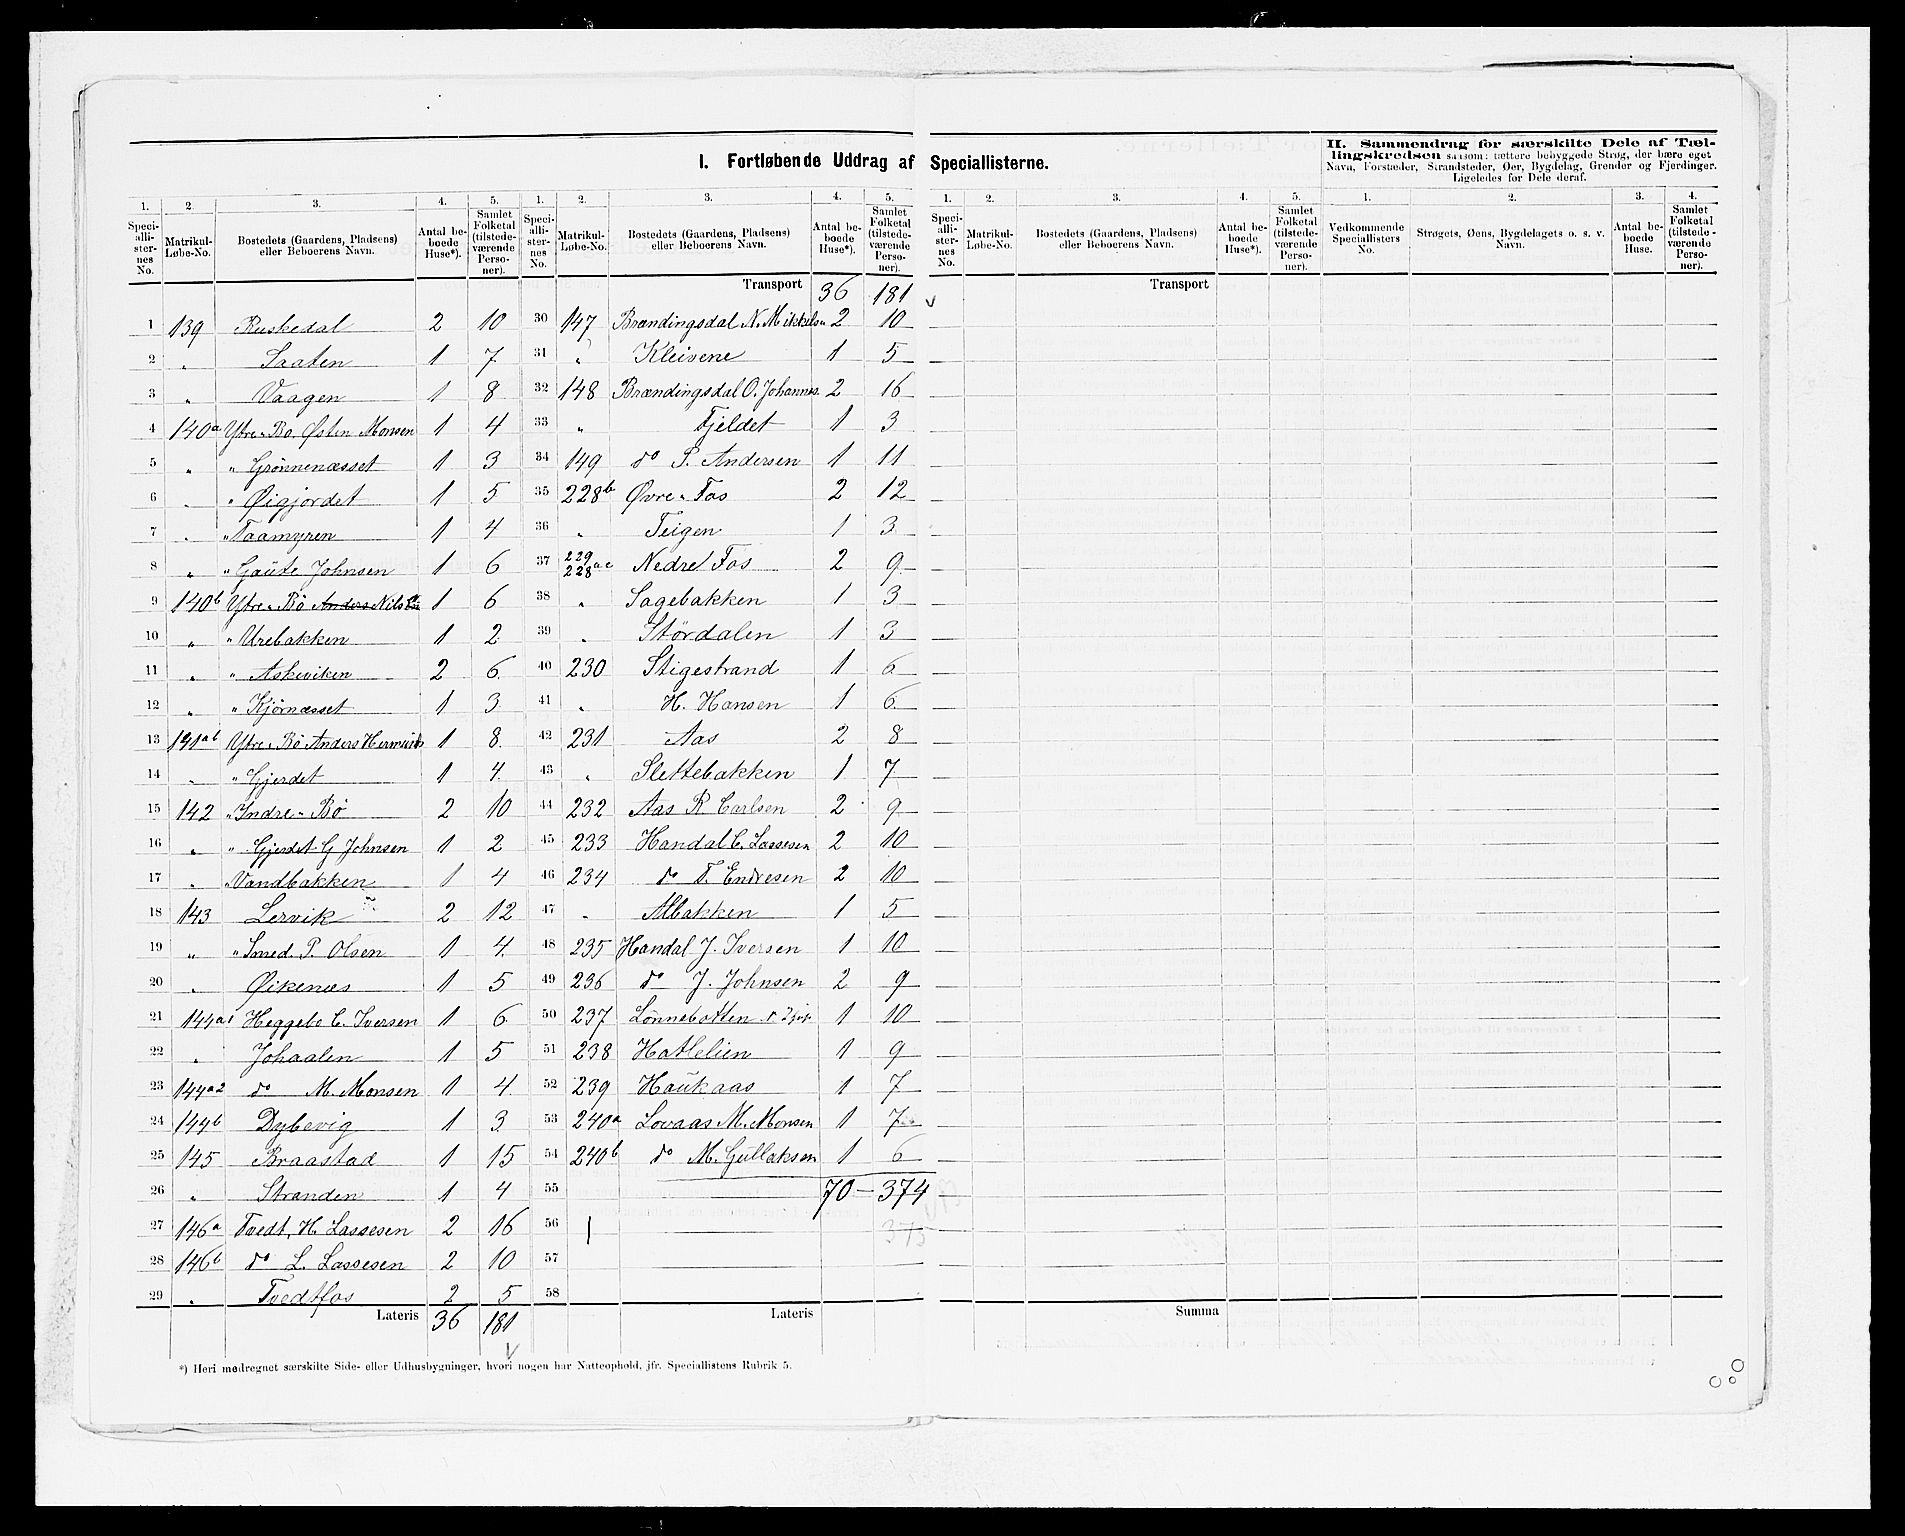 I. Fortløbende Uddrag af Speciallisterne.
II. Sammendrag for særskilte Dele af Tællingskredsen saasom: tættere bebyggede Strøg, der bære eget Navn, Forstæder, Strandsteder, Øer, Bygdelag, Grender og Fjerdinger. Ligeledes for Dele deraf.
1. 2. 3. 4. 5. 1. 2. 3. 4. 5. 1. 2. 3. 4. 5. 1. 2. 3. 4.
Speciallisternes No. Matrikul-Løbe-No. Bostedets (Gaardens, Pladsens) eller Beboerens Navn. Antal beboede Huse*). Samlet Folketal (tilstedeværende Personer).
Speciallisternes No. Matrikul-Løbe-No. Bostedets (Gaardens, Pladsens) eller Beboerens Navn. Antal beboede Huse*). Samlet Folketal (tilstedeværende Personer).
Speciallisternes No. Matrikul-Løbe-No. Bostedets (Gaardens, Pladsens) eller Beboerens Navn. Antal beboede Huse*). Samlet Folketal (tilstedeværende Personer).
Vedkommende Speciallisters No. Strøgets, Øens, Bygdelagets o. s. v. Navn. Antal beboede Huse. Samlet Folketal (tilstedeværende Personer).
1 139 Ruskedal 2 10
2 " Saaten 1 7
3 " Vaagen 1 8
4 140a Ytre-Bo Østen Monsen 1 4
5 " " Grönnenæsset 1 3
6 " " Øigjordet 1 5
7 " " Taamyren 1 4
8 " " Gaute Johnsen 1 6
9 140b Ytre-Bö Anders Nils 1 6
10 " " Urebakken 1 2
11 " " Askeviken 2 6
12 " " Kjörnæsset 1 3
13 141ab Ytre-Bö Anders 1 8
14 " " Gjerdet 1 4
15 142 " Indre-Bö 2 10
16 " " Gjerdet G Johnsen 1 2
17 " " Vandbakken 1 4
18 143 Lervik 2 12
19 " " Smed P. Olsen 1 4
20 " Øikenæs 1 5
21 144a1 Heggebo C. Iversen 1 6
22 " Johaalen 1 5
23 144a2 do M. Monsen 1 4
24 144b Dybevig 1 3
25 145 Braastad 1 15
26 " Stranden 1 4
27 146a Tvedt, H. Lassesen 2 16
28 146b do L. Lassesen 2 10
29 " Tvedtfos 2 5
Lateris 36 181
Transport 36 181
30 147 Brændingsdal N. Mikkels 2 10
31 " Kleivene 1 5
32 148 Brændingsdal O. Johannes. 2 16
33 " Fjeldet 1 3
34 149 do P. Andersen 1 11
35 228b Øvre-Fos 2 12
36 " Teigen 1 3
37 229 228 ac Nedre Fos 2 9
38 " Sagebakken 1 3
39 " Stördalen 1 3
40 230 Stigestrand 1 6
41 " H. Hansen 1 6
42 231 Aas 2 8
43 " Slettebakken 1 7
44 232 Aas R. Carlsen 2 9
45 233 Handal C. Lassesen 2 10
46 234 do T. Endresen 2 10
47 " Albakken 1 5
48 235 Handal J. Iversen 1 10
49 236 do J. Johnsen 2 9
50 237 Lönnebotten 1 10
51 238 Hatlelien 1 9
52 239 Haukaas 1 7
53 240a Lovaas M. Monsen 1 7
54 240b do M. Gullaksen 1 6
55 70 - 374
56 375
57
58
Lateris
Transport
Summa
*) Heri medregnet særskilte Side- eller Udhusbygninger, hvori nogen har Natteophold, jfr. Speciallistens Rubrik 5.